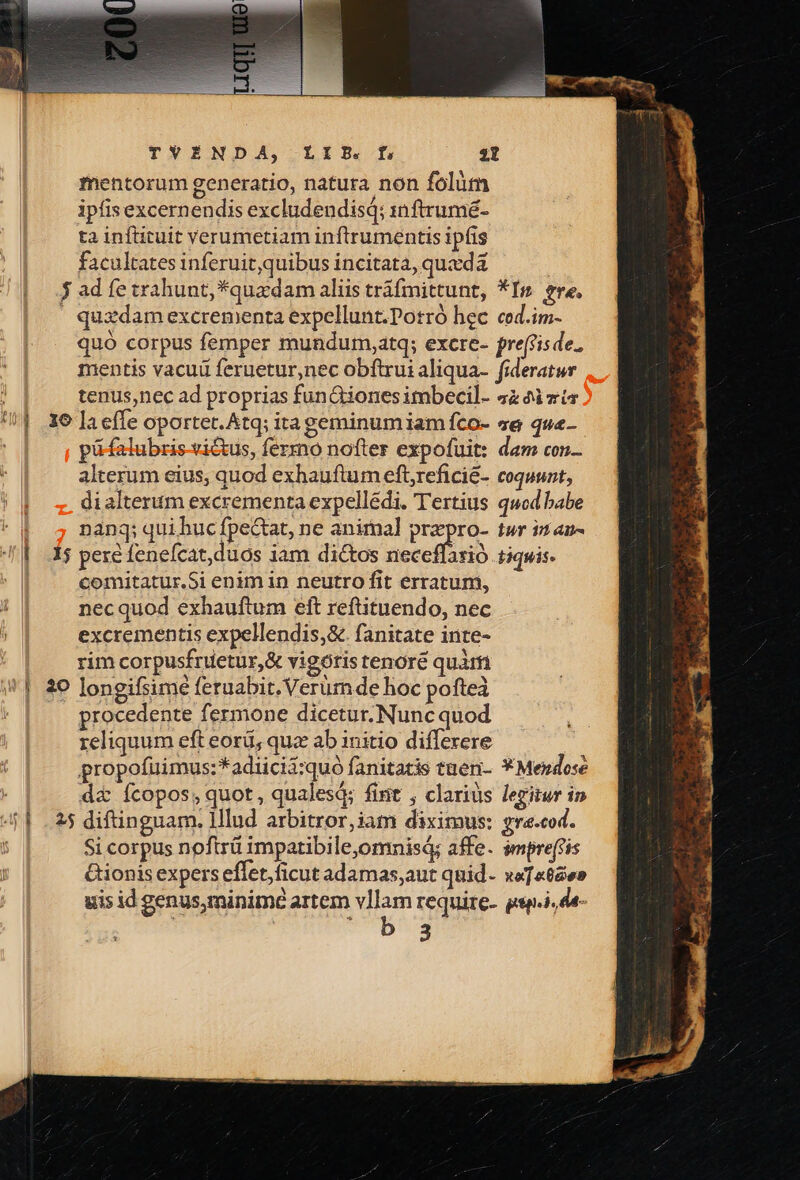 002
em libri
TVENDA, LIB. I. 21
mentorum generatio, natura non ſolùm
ipſis excernendis excludendisq́; inſtrumẽ-
ta inſtituit verumetiam inſtrumentis ipſis
facultates inſeruit,quibus incitata, quædã
5 ad ſe trahunt,*quædam aliis trãſmittunt,
quædam excrementa expellunt.Porrò hęc
quò corpus ſemper mundum,atq; excre-
mentis vacuũ ſeruetur,nec obſtrui aliqua-
tenus,nec ad proprias functiones imbecil-
10 la eſſe oportet.Atq; ita geminum iam ſco-
pũ ſalubris victus, ſermo noſter expoſuit:
alterum eius, quod exhauſtum eſt,reficiẽ-
di alterum excrementa expellẽdi. Tertius
nanq; qui huc ſpectat, ne animal præpro-
15 perè ſeneſcat,duos iam dictos neceſſariò
comitatur.Si enim in neutro fit erratum,
nec quod exhauſtum eſt reſtituendo, nec
excrementis expellendis,& ſanitate inte-
rim corpus fruetur,& vigoris tenorẽ quàm
20 longiſsimè ſeruabit.Verùm de hoc poſteà
procedente ſermone dicetur.Nunc quod
reliquum eſt eorũ, quæ ab initio diſſerere
propoſuimus:*adiiciã:quò ſanitatis tuen-
dæ ſcopos, quot, qualesq́; ſint, clariùs
25 diſtinguam. Illud arbitror,iam diximus:
Si corpus noſtrũ impatibile,omnisq́; affe-
ctionis expers eſſet,ſicut adamas,aut quid-
uis id genus,minimè artem vllam require-
b 3
*In græ.
cod.im-
preſsis de-
ſideratur
dam con-
coquunt,
quod habe
tur in an-
tiquis.
*Mendosè
legitur in
græ.cod.
impreſsis